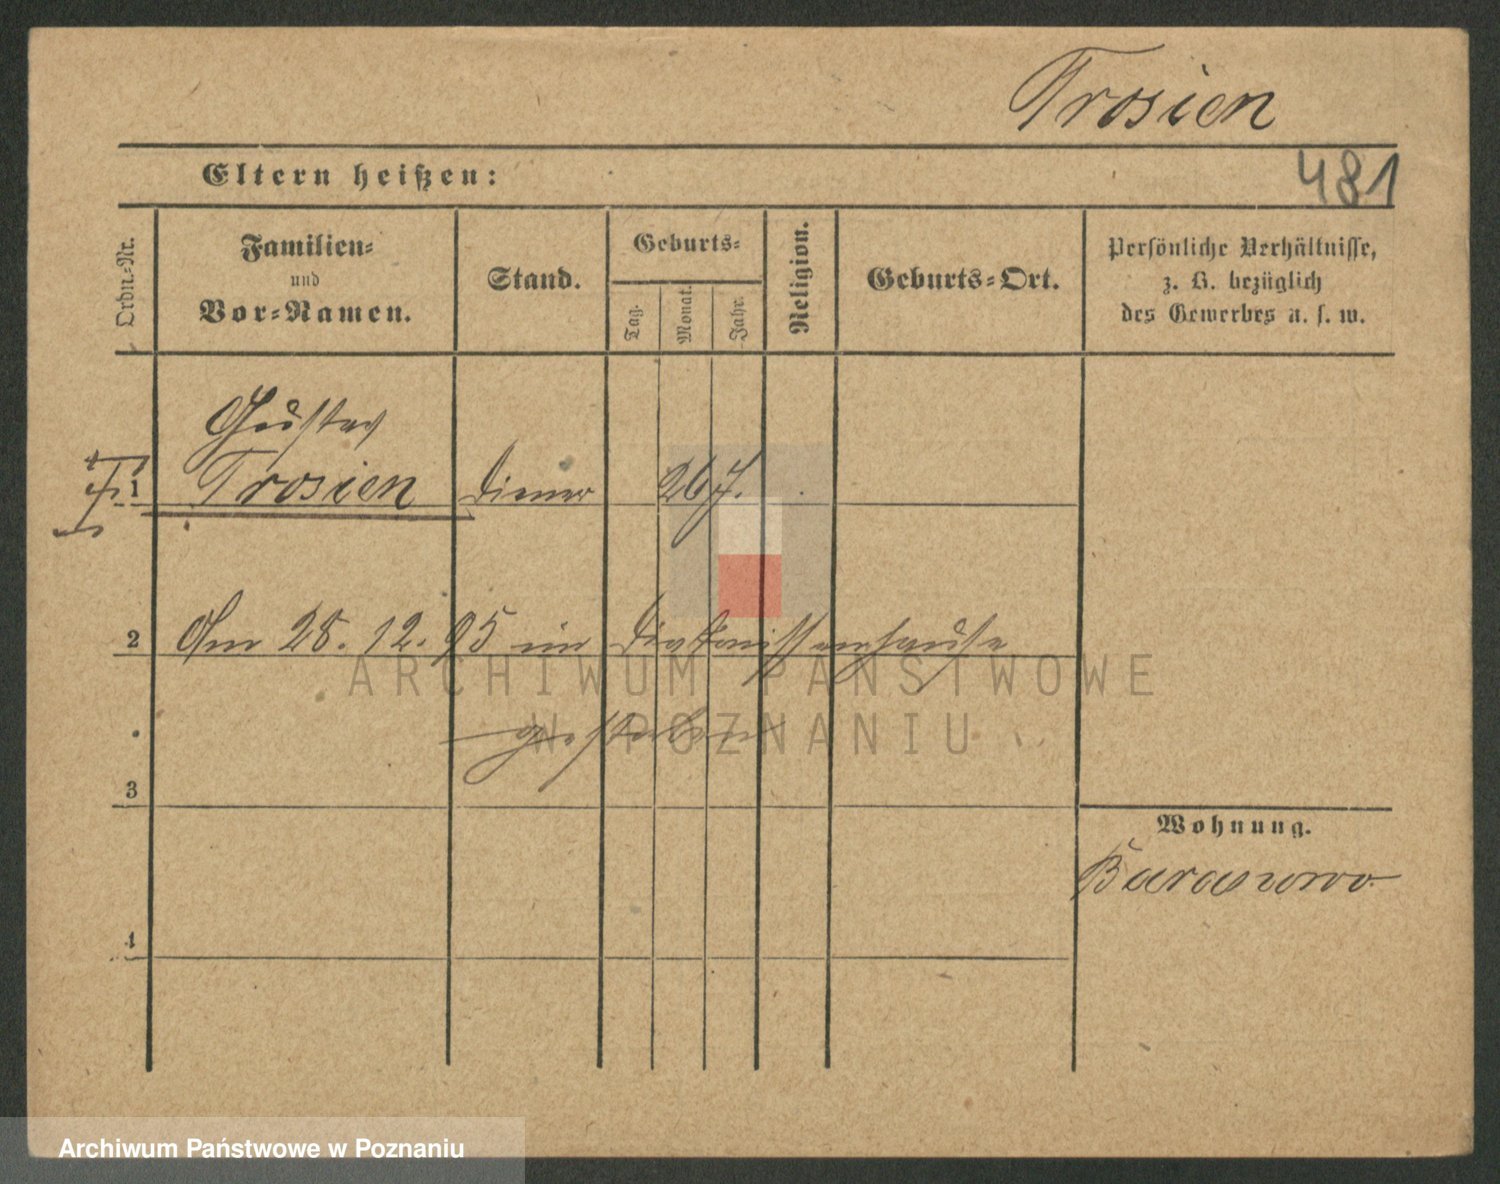 Trosien
481
Eltern heißen:
Ordn.-Nr.
Familien-
und
Vor-Namen.
Stand.
Geburts-
Tag.
Monat.
Jahr.
Religion.
Geburts-Ort.
Persönliche Verhältnisse,
z. B. bezüglich
des Gewerbes u. s. w.
Gustav
1 Trosien Diener 26 J.
2 Am 28. 12. 95 im Diakonissenhause
gestorben
3
Wohnung.
4
ARCHIWUM PAŃSTWOWE
W POZNANIU
Archiwum Państwowe w Poznaniu